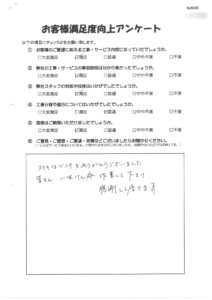 お客様満足度向上アンケート
以下の項目にチェック☑をお願い致します。
① お客様のご要望に応える工事・サービス内容になっていたでしょうか。
□大変満足 ☑満足 □普通 □やや不満 □不満
② 弊社の工事・サービスの事前説明は分かり易かったでしょうか。
□大変満足 ☑満足 □普通 □やや不満 □不満
③ 弊社スタッフの対応や技術はいかがでしたでしょうか。
□大変満足 ☑満足 □普通 □やや不満 □不満
④ 工事日程や進行についてはいかがでしたでしょうか。
□大変満足 ☑満足 □普通 □やや不満 □不満
⑤ 価格はご納得いただけましたでしょうか。
□大変満足 ☑満足 □普通 □やや不満 □不満
⑥ ご意見・ご感想・ご要望・苦情などございましたらお聞かせください。
ありがとうございました
皆さん 一生けん命 作業して下さり
感謝して居ります